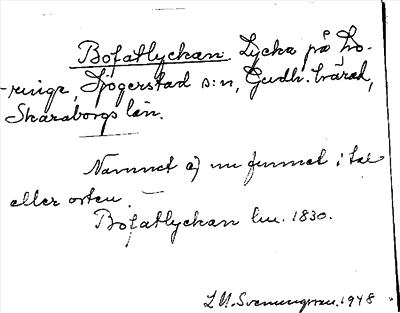 Bofatlyckan Lycka på Lo-
-ringa, Sjögerstad s:n, Gudh. härad,
Skaraborgs län.
Namnet ej nu funnet i tal
eller orten. —
Bofatlyckan lm. 1830.
L M. Svenungsson. 1948